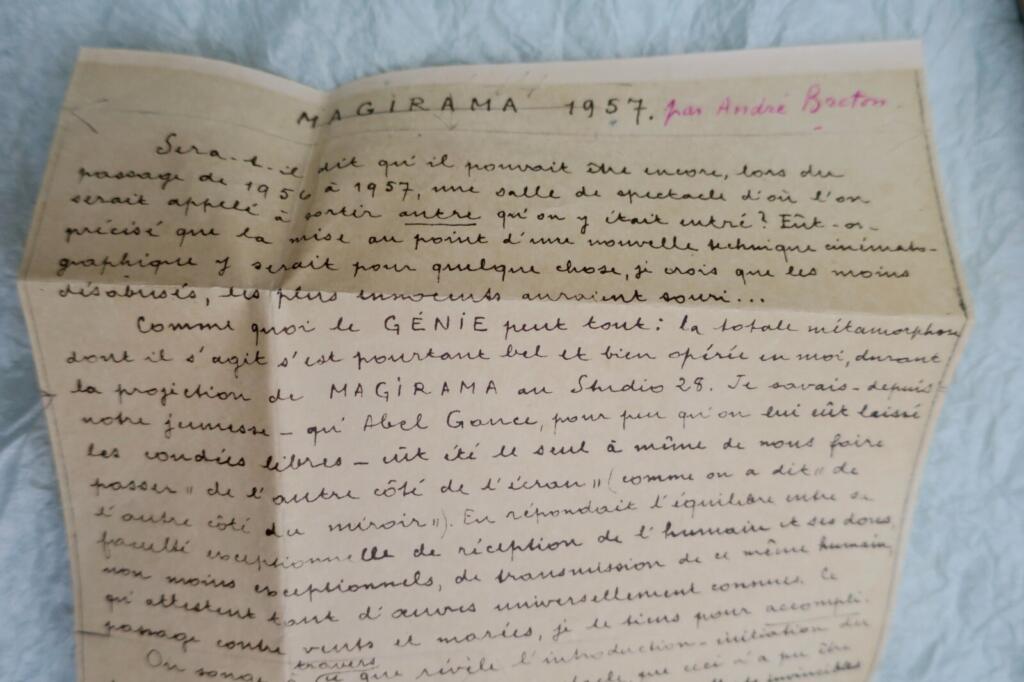 MAGIRAMA 1957. par André Breton.
Sera-t-il dit qu'il pouvait être encore, lors du
passage de 1956 à 1957, une salle de spectacle d'où l'on
serait appelé à sortir autre qu'on y était entré? Eût-on
précisé que la mise au point d'une nouvelle technique cinémato-
graphique y serait pour quelque chose, je crois que les moins
désabusés, les plus innocents auraient souri...
Comme quoi le GÉNIE peut tout: la totale métamorphose
dont il s'agit s'est pourtant bel et bien opérée en moi, durant
la projection de MAGIRAMA au Studio 28. Je savais - depuis
notre jeunesse - qu'Abel Gance, pour peu qu'on lui eût laissé
les coudées libres - eût été le seul à même de nous faire
passer "de l'autre côté de l'écran" (comme on a dit "de
l'autre côté du miroir"). En répondait l'équilibre entre sa
faculté exceptionnelle de réception de l'humain et ses dons,
non moins exceptionnels, de transmission de ce même humain,
qu'attestent tant d'œuvres universellement connues. Ce
passage contre vents et marées, je le tiens pour accompli.
On songe à travers ce que révèle l'introduction-initiation du
que ceci n'a pu être